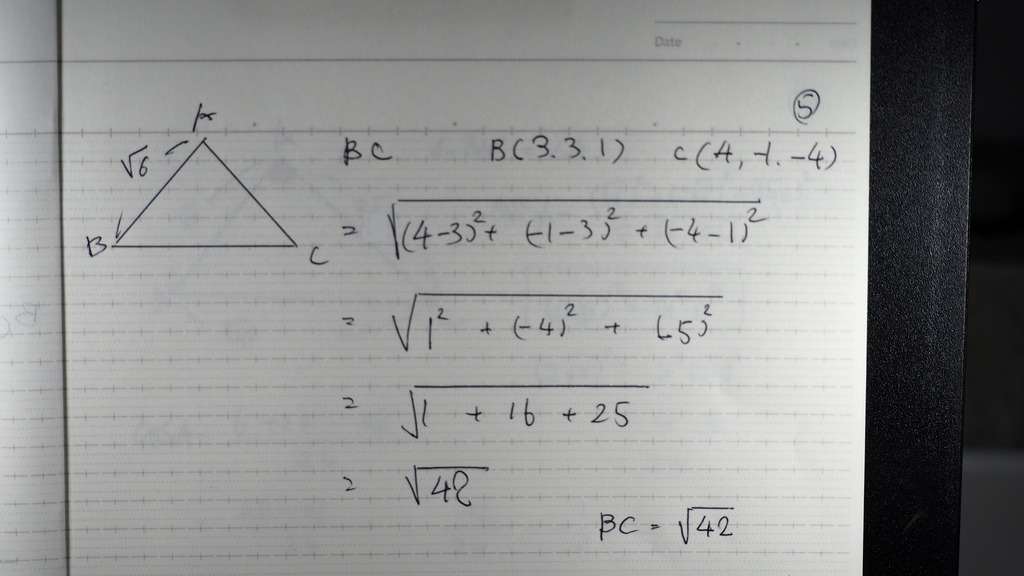 Date
⑤
A
√6
B
C
BC B(3.3.1) C(4,-1.-4)
= √((4-3)²+ (-1-3)² + (-4-1)²)
= √(1² + (-4)² + (-5)²)
= √(1 + 16 + 25)
= √42
BC = √42